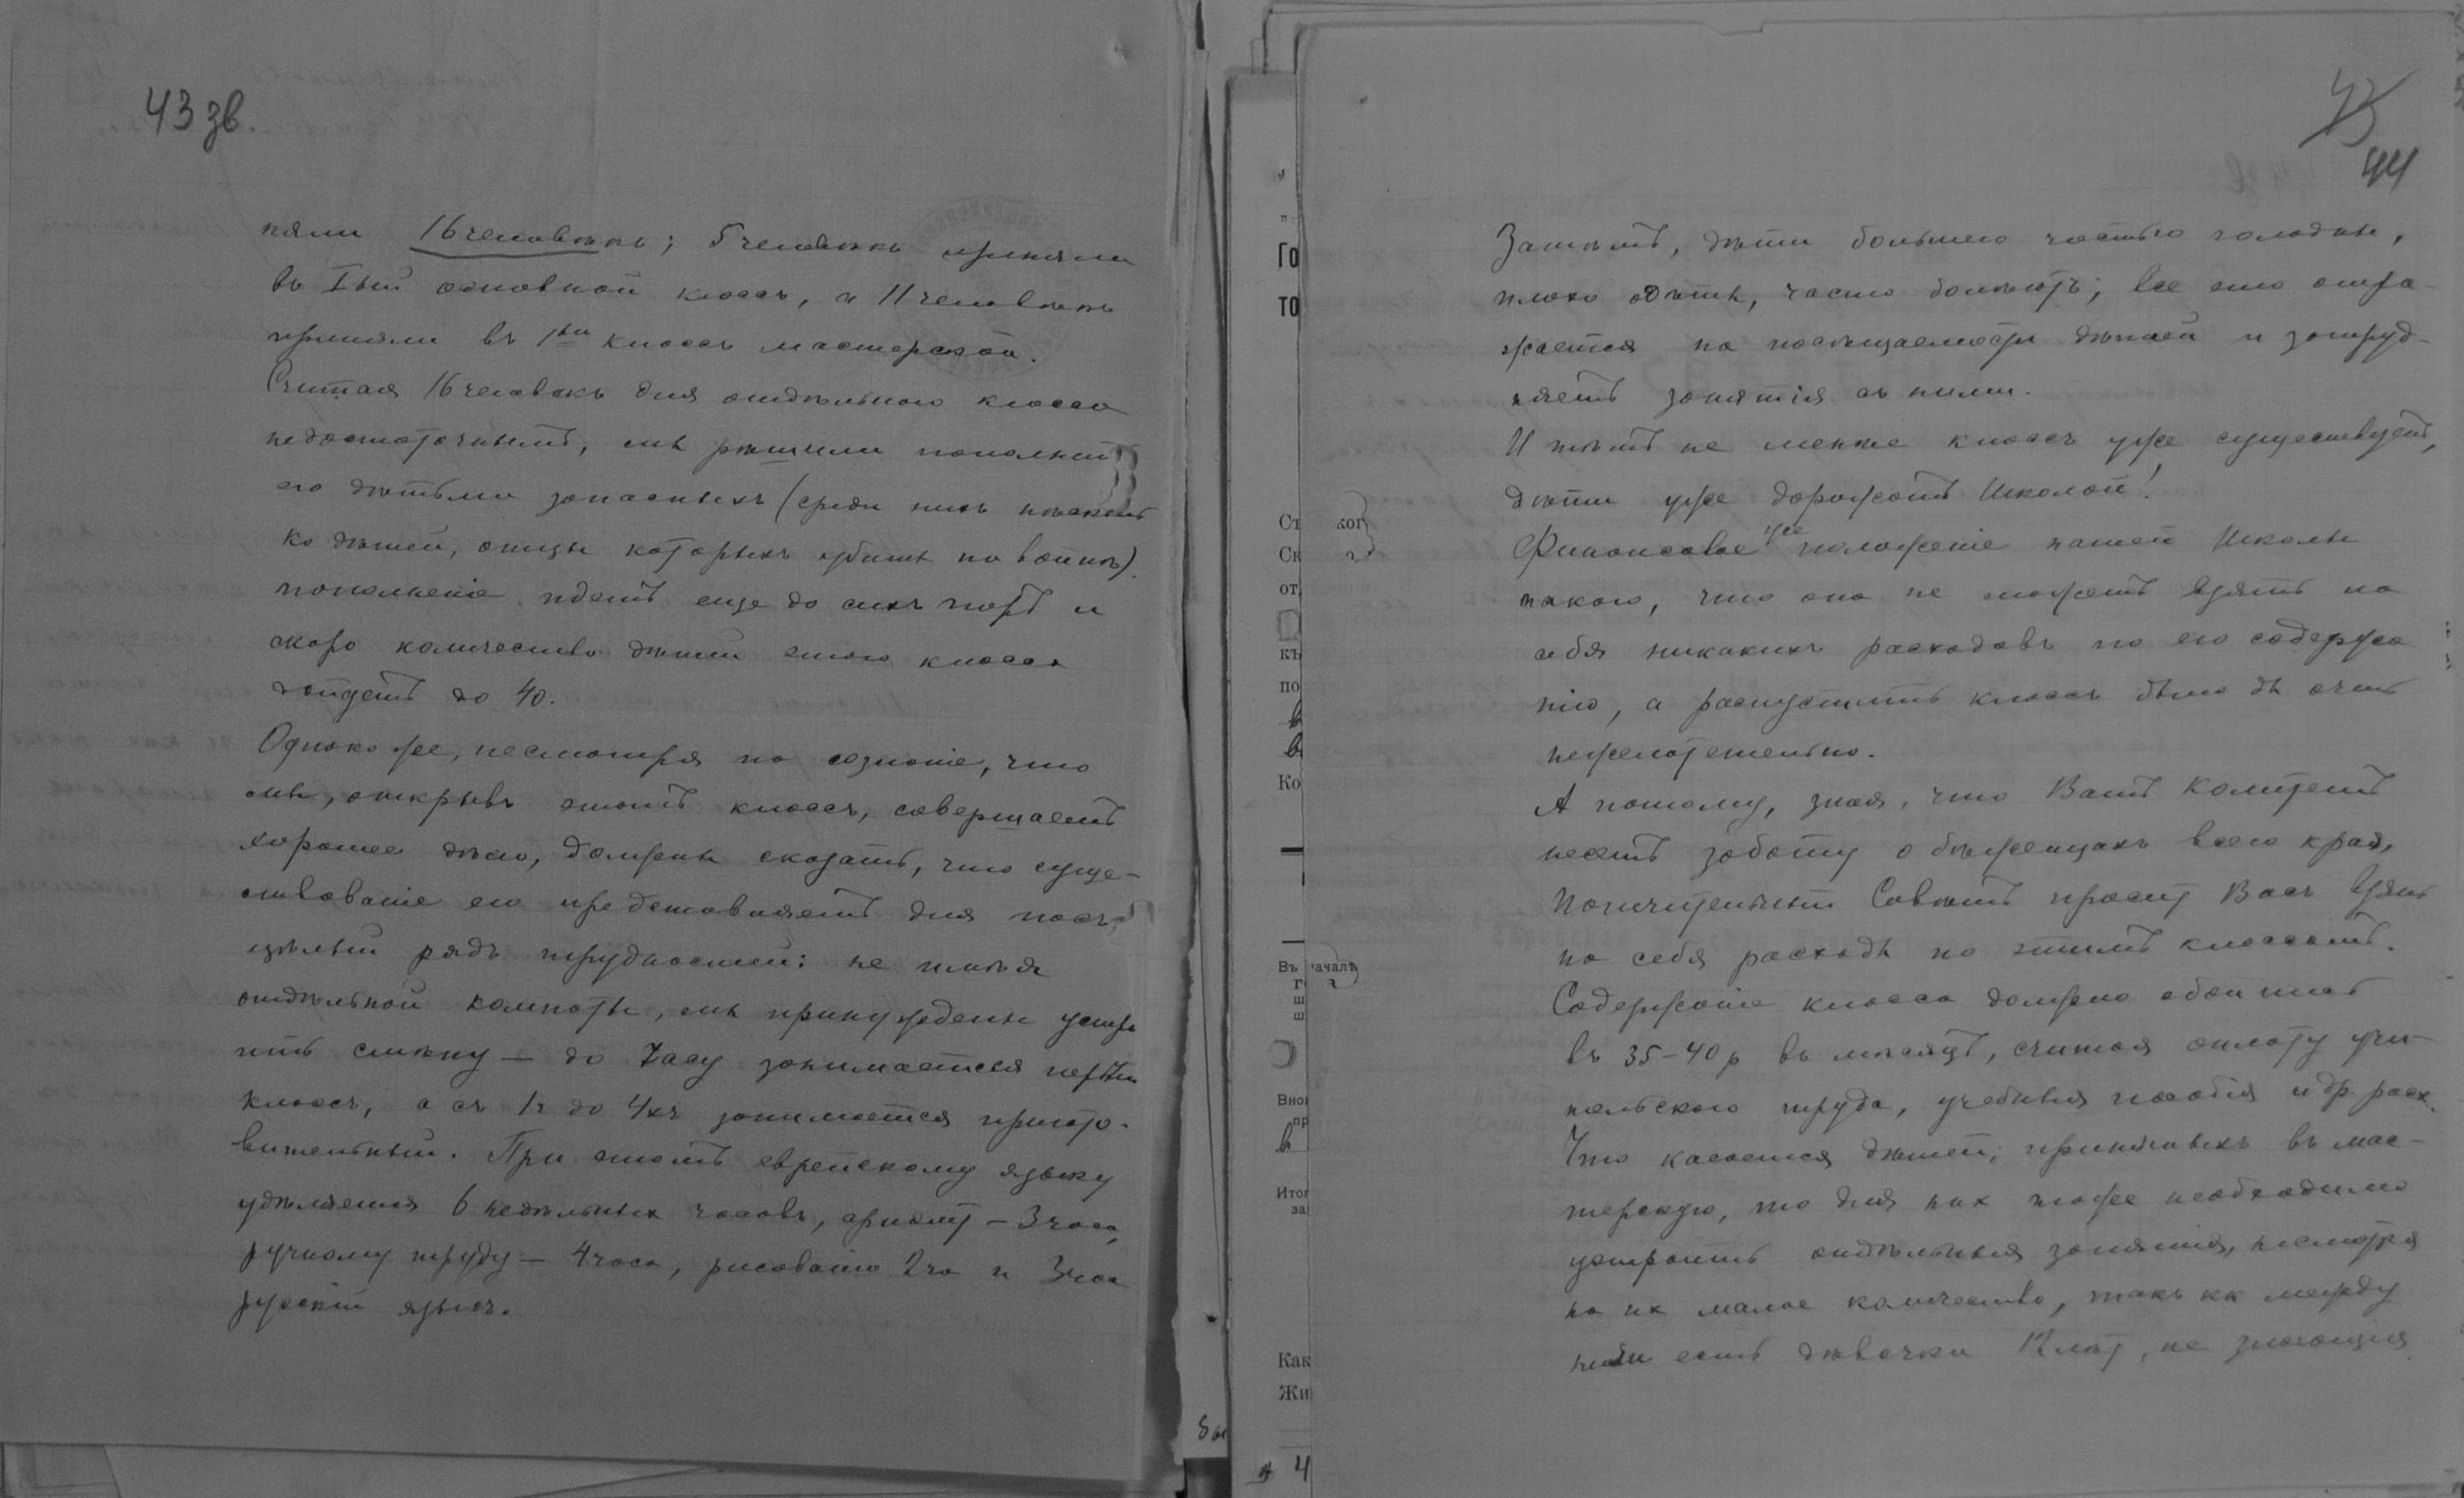 43 зв.
няли 16 человѣкъ; 5 человѣкъ приняли
въ Iый основной классъ, а 11 человѣкъ
приняли въ 1ый классъ мастерской.
Считая 16 человѣкъ для отдѣльнаго класса
недостаточнымъ, мы рѣшили пополнить
его дѣтьми запасныхъ (среди нихъ нѣсколь
ко дѣтей, отцы которыхъ убиты на войнѣ).
Пополненіе идетъ еще до сихъ поръ и
скоро количество дѣтей этого класса
дойдетъ до 40.
Однако же, несмотря на сознаніе, что
мы, открывъ этотъ классъ, совершаемъ
хорошее дѣло, должны сказать, что суще-
ствованіе его представляетъ для насъ
цѣлый рядъ трудностей: не имѣя
отдѣльной комнаты, мы принуждены устро
ить смѣну — до 1 часу занимается первый
классъ, а съ 1 ч до 4хъ занимается пригото-
вительный. При этомъ еврейскому языку
удѣляется 6 недѣльных часовъ, ариѳмет — 3 часа,
ручному труду — 4 часа, рисованію 2 ча и 3 час
русскій языкъ.
43
44
Затѣмъ, дѣти большею частью голодны,
плохо одѣты, часто болѣютъ; все это отра-
жается на посѣщаемости дѣтей и затруд-
няетъ занятія съ ними.
И тѣмъ не менѣе классъ уже существуетъ,
дѣти уже дорожатъ Школой!
Финансовое же положеніе нашей Школы
таково, что она не можетъ взять на
себя никакихъ расходовъ по его содержа
нію, а распустить классъ было бы очень
нежелательно.
А потому, зная, что Вашъ Комитетъ
несетъ заботу о бѣженцахъ всего края,
Попечительный Совѣтъ проситъ Васъ взять
на себя расходы по этимъ классамъ.
Содержаніе класса должно обойтись
въ 35-40 р въ мѣсяцъ, считая оплату учи-
тельскаго труда, учебныя пособія и др. расх.
Что касается дѣтей, принятыхъ въ мас-
терскую, то для них тоже необходимо
устроить отдѣльныя занятія, несмотря
на их малое количество, такъ кк между
ними есть дѣвочки 12 лѣт, не знающія